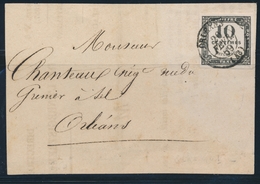 10
Monsieur
Chanteau nég. rue du
Grenier à Sel
Orléans